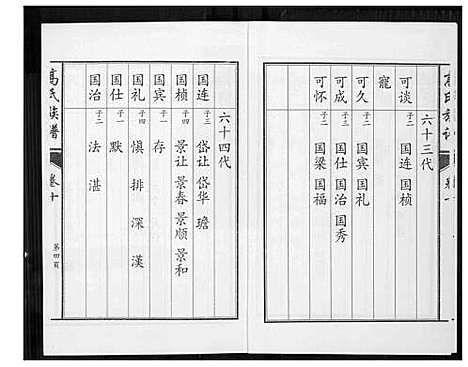 高氏族谱
六十三代
可谈 子二 国连 国桢
宠
可久 子二 国宾 国礼
可成 子三 国仕 国治 国秀
可怀 子二 国梁 国福
六十四代
国连 子三 岱让 岱华 瑭
国桢 子四 景让 景春 景顺 景和
国宾 子一 存
国礼 子四 慎 排 深 漢
国仕 子一 默
国治 子二 法 湛
高氏族谱
卷十
第四页